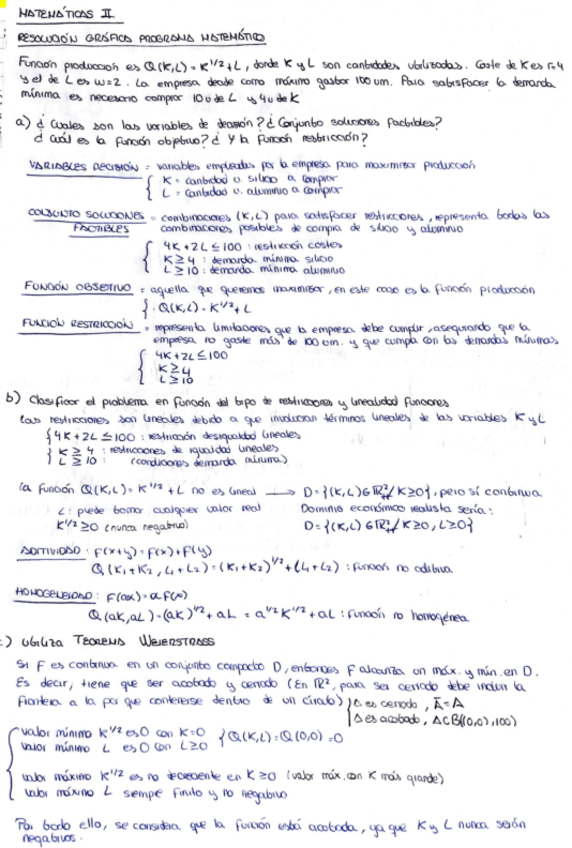 MATEMÁTICAS II.
RESOLUCIÓN GRÁFICA PROGRAMA MATEMÁTICO
Función producción es Q(K,L) = K^1/2 + L, donde K y L son cantidades utilizadas. Coste de K es r=4
y el de L es w=2. La empresa desea como máximo gastar 100 um. Para satisfacer la demanda
mínima es necesario comprar 10 u de L y 4 u de K
a) ¿Cuáles son las variables de decisión? ¿Conjunto soluciones factibles?
¿Cuál es la función objetivo? ¿Y la función restricción?
VARIABLES DECISIÓN = variables empleadas por la empresa para maximizar producción
{ K = cantidad u. silicio a comprar
L = cantidad u. aluminio a comprar
CONJUNTO SOLUCIONES = combinaciones (K,L) para satisfacer restricciones, representa todas las
FACTIBLES combinaciones posibles de compra de silicio y aluminio
{ 4K + 2L ≤ 100 : restricción costes
K ≥ 4 : demanda mínima silicio
L ≥ 10 : demanda mínima aluminio
FUNCIÓN OBJETIVO = aquella que queremos maximizar, en este caso es la función producción
{ Q(K,L) = K^1/2 + L
FUNCIÓN RESTRICCIÓN = representa limitaciones que la empresa debe cumplir, asegurando que la
empresa no gaste más de 100 um. y que cumpla con las demandas mínimas
{ 4K + 2L ≤ 100
K ≥ 4
L ≥ 10
b) Clasificar el problema en función del tipo de restricciones y linealidad funciones
Las restricciones son lineales debido a que involucran términos lineales de las variables K y L
{ 4K + 2L ≤ 100 : restricción desigualdad lineales
{ K ≥ 4 : restricciones de igualdad lineales
L ≥ 10 : (condiciones demanda mínima)
La función Q(K,L) = K^1/2 + L no es lineal → D = {(K,L) ∈ ℝ²₊₊ / K ≥ 0}, pero sí continua
L : puede tomar cualquier valor real Dominio económico realista sería:
K^1/2 ≥ 0 (nunca negativo) D = {(K,L) ∈ ℝ²₊₊ / K ≥ 0, L ≥ 0}
ADITIVIDAD : F(x+y) = F(x) + F(y)
Q(K₁+K₂, L₁+L₂) = (K₁+K₂)^1/2 + (L₁+L₂) : función no aditiva
HOMOGENEIDAD : F(ax) = a F(x)
Q(aK, aL) = (aK)^1/2 + aL = a^1/2 K^1/2 + aL : función no homogénea
:) Utiliza TEOREMA WEIERSTRASS
Si F es continua en un conjunto compacto D, entonces F alcanza un máx. y mín. en D.
Es decir, tiene que ser acotado y cerrado (En ℝ², para ser cerrado debe incluir la
frontera a la par que contenerse dentro de un círculo) { A es cerrado, Ā = A
A es acotado, A ⊂ B((0,0), 100)
{ valor mínimo K^1/2 es 0 con K=0
valor mínimo L es 0 con L ≥ 0 } Q(K,L) = Q(0,0) = 0
valor máximo K^1/2 es no decreciente en K ≥ 0 (valor máx. con K más grande)
valor máximo L siempre finito y no negativo
Por todo ello, se considera que la función está acotada, ya que K y L nunca serán
negativos.